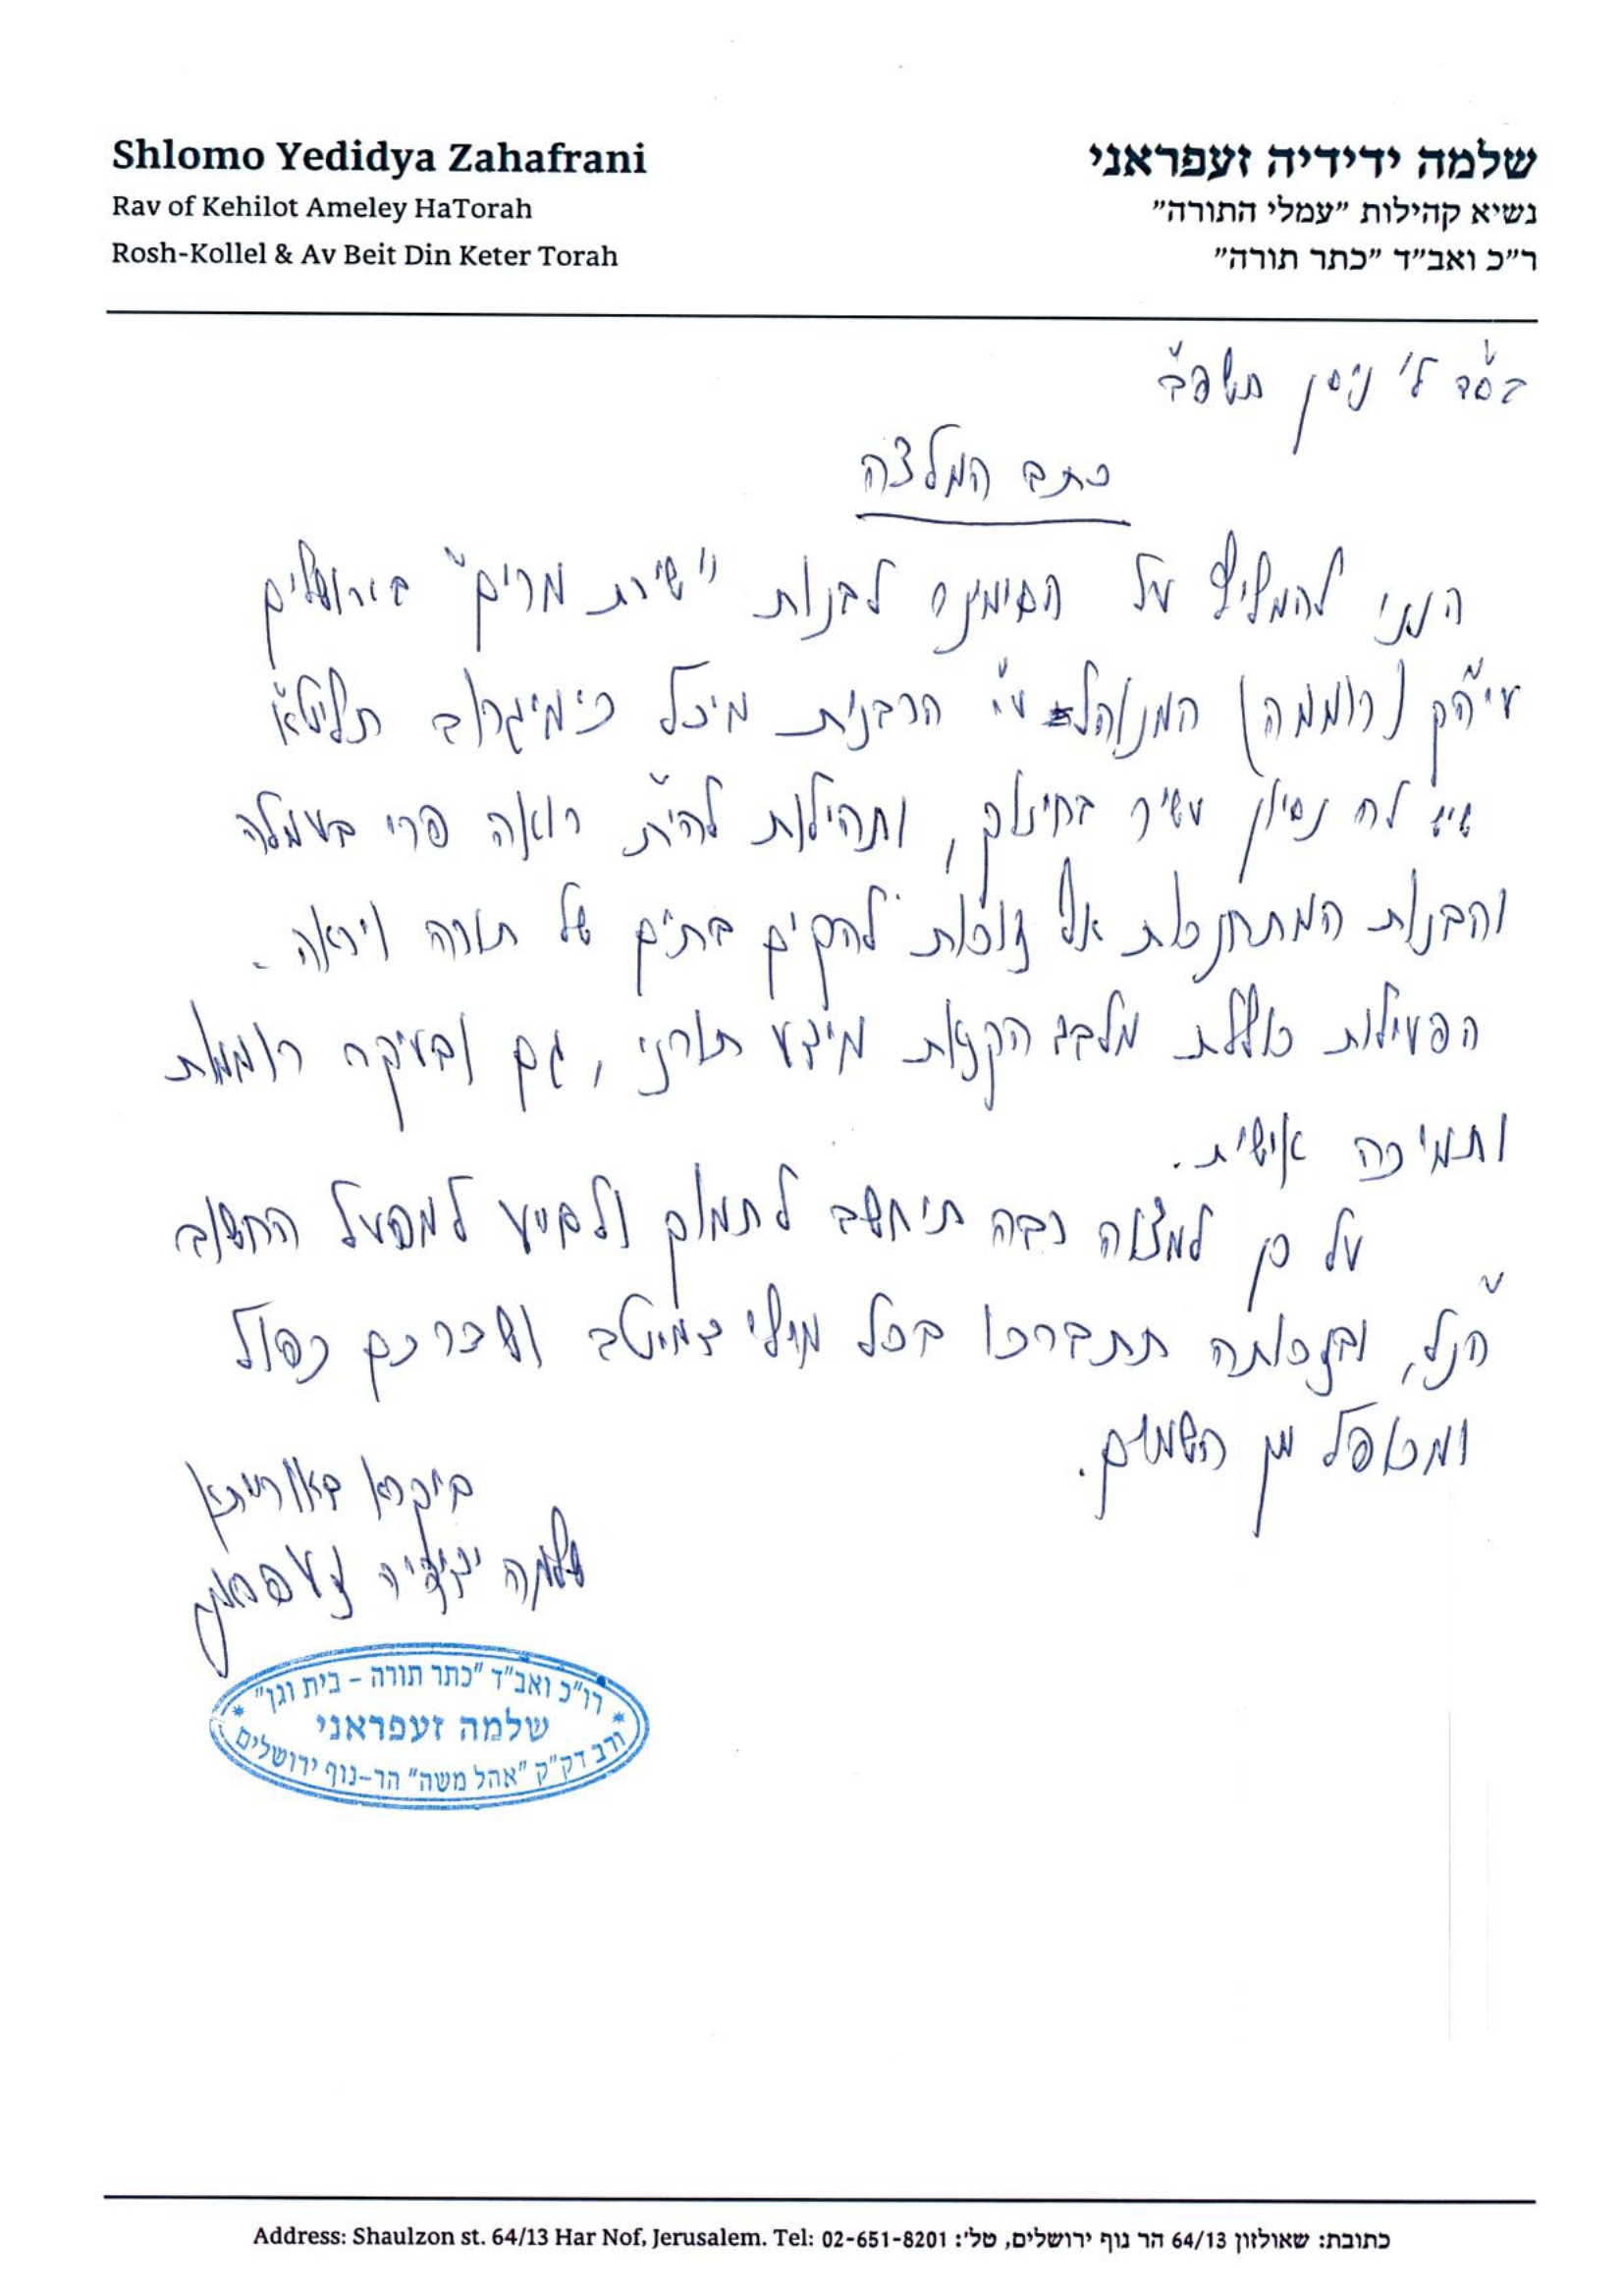 Shlomo Yedidya Zahafrani
Rav of Kehilot Ameley HaTorah
Rosh-Kollel & Av Beit Din Keter Torah
שלמה ידידיה זעפראני
נשיא קהילות "עמלי התורה"
ר"כ ואב"ד "כתר תורה"
בס"ד ל' ניסן תשפ"ב
כתב המלצה
הנני להמליץ על הסימינר לבנות "שירת מרים" בירושלים
עיה"ק (רוממה) המנוהל ע"י הרבנית מיכל תליט"א
שיש לה נסיון עשיר בחינוך, ותהילות להי"ת רואה פרי בעמלה
והבנות המתחנכות אצלה זוכות להקים בתים של תורה ויראה.
הפעילות כוללת מלבד הקנאת מידע תורני, גם ובעיקר רוממות
ותמיכה אישית.
על כן למצוה רבה תיחשב לתמוך ולסייע למפעל החשוב
הנ"ל, ובזכותה תתברכו בכל מילי דמיטב ושכרכם כפול
ומכופל מן השמים.
ביקרא דאורייתא
שלמה ידידיה זעפראני
רו"כ ואב"ד "כתר תורה - בית וגן"
שלמה זעפראני
ורב דק"ק "אהל משה" הר-נוף ירושלים
Address: Shaulzon st. 64/13 Har Nof, Jerusalem. Tel: 02-651-8201 :כתובת: שאולזון 64/13 הר נוף ירושלים, טל'